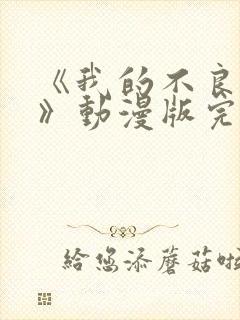 《我的不良
》動漫版完
給您添蘑菇啦